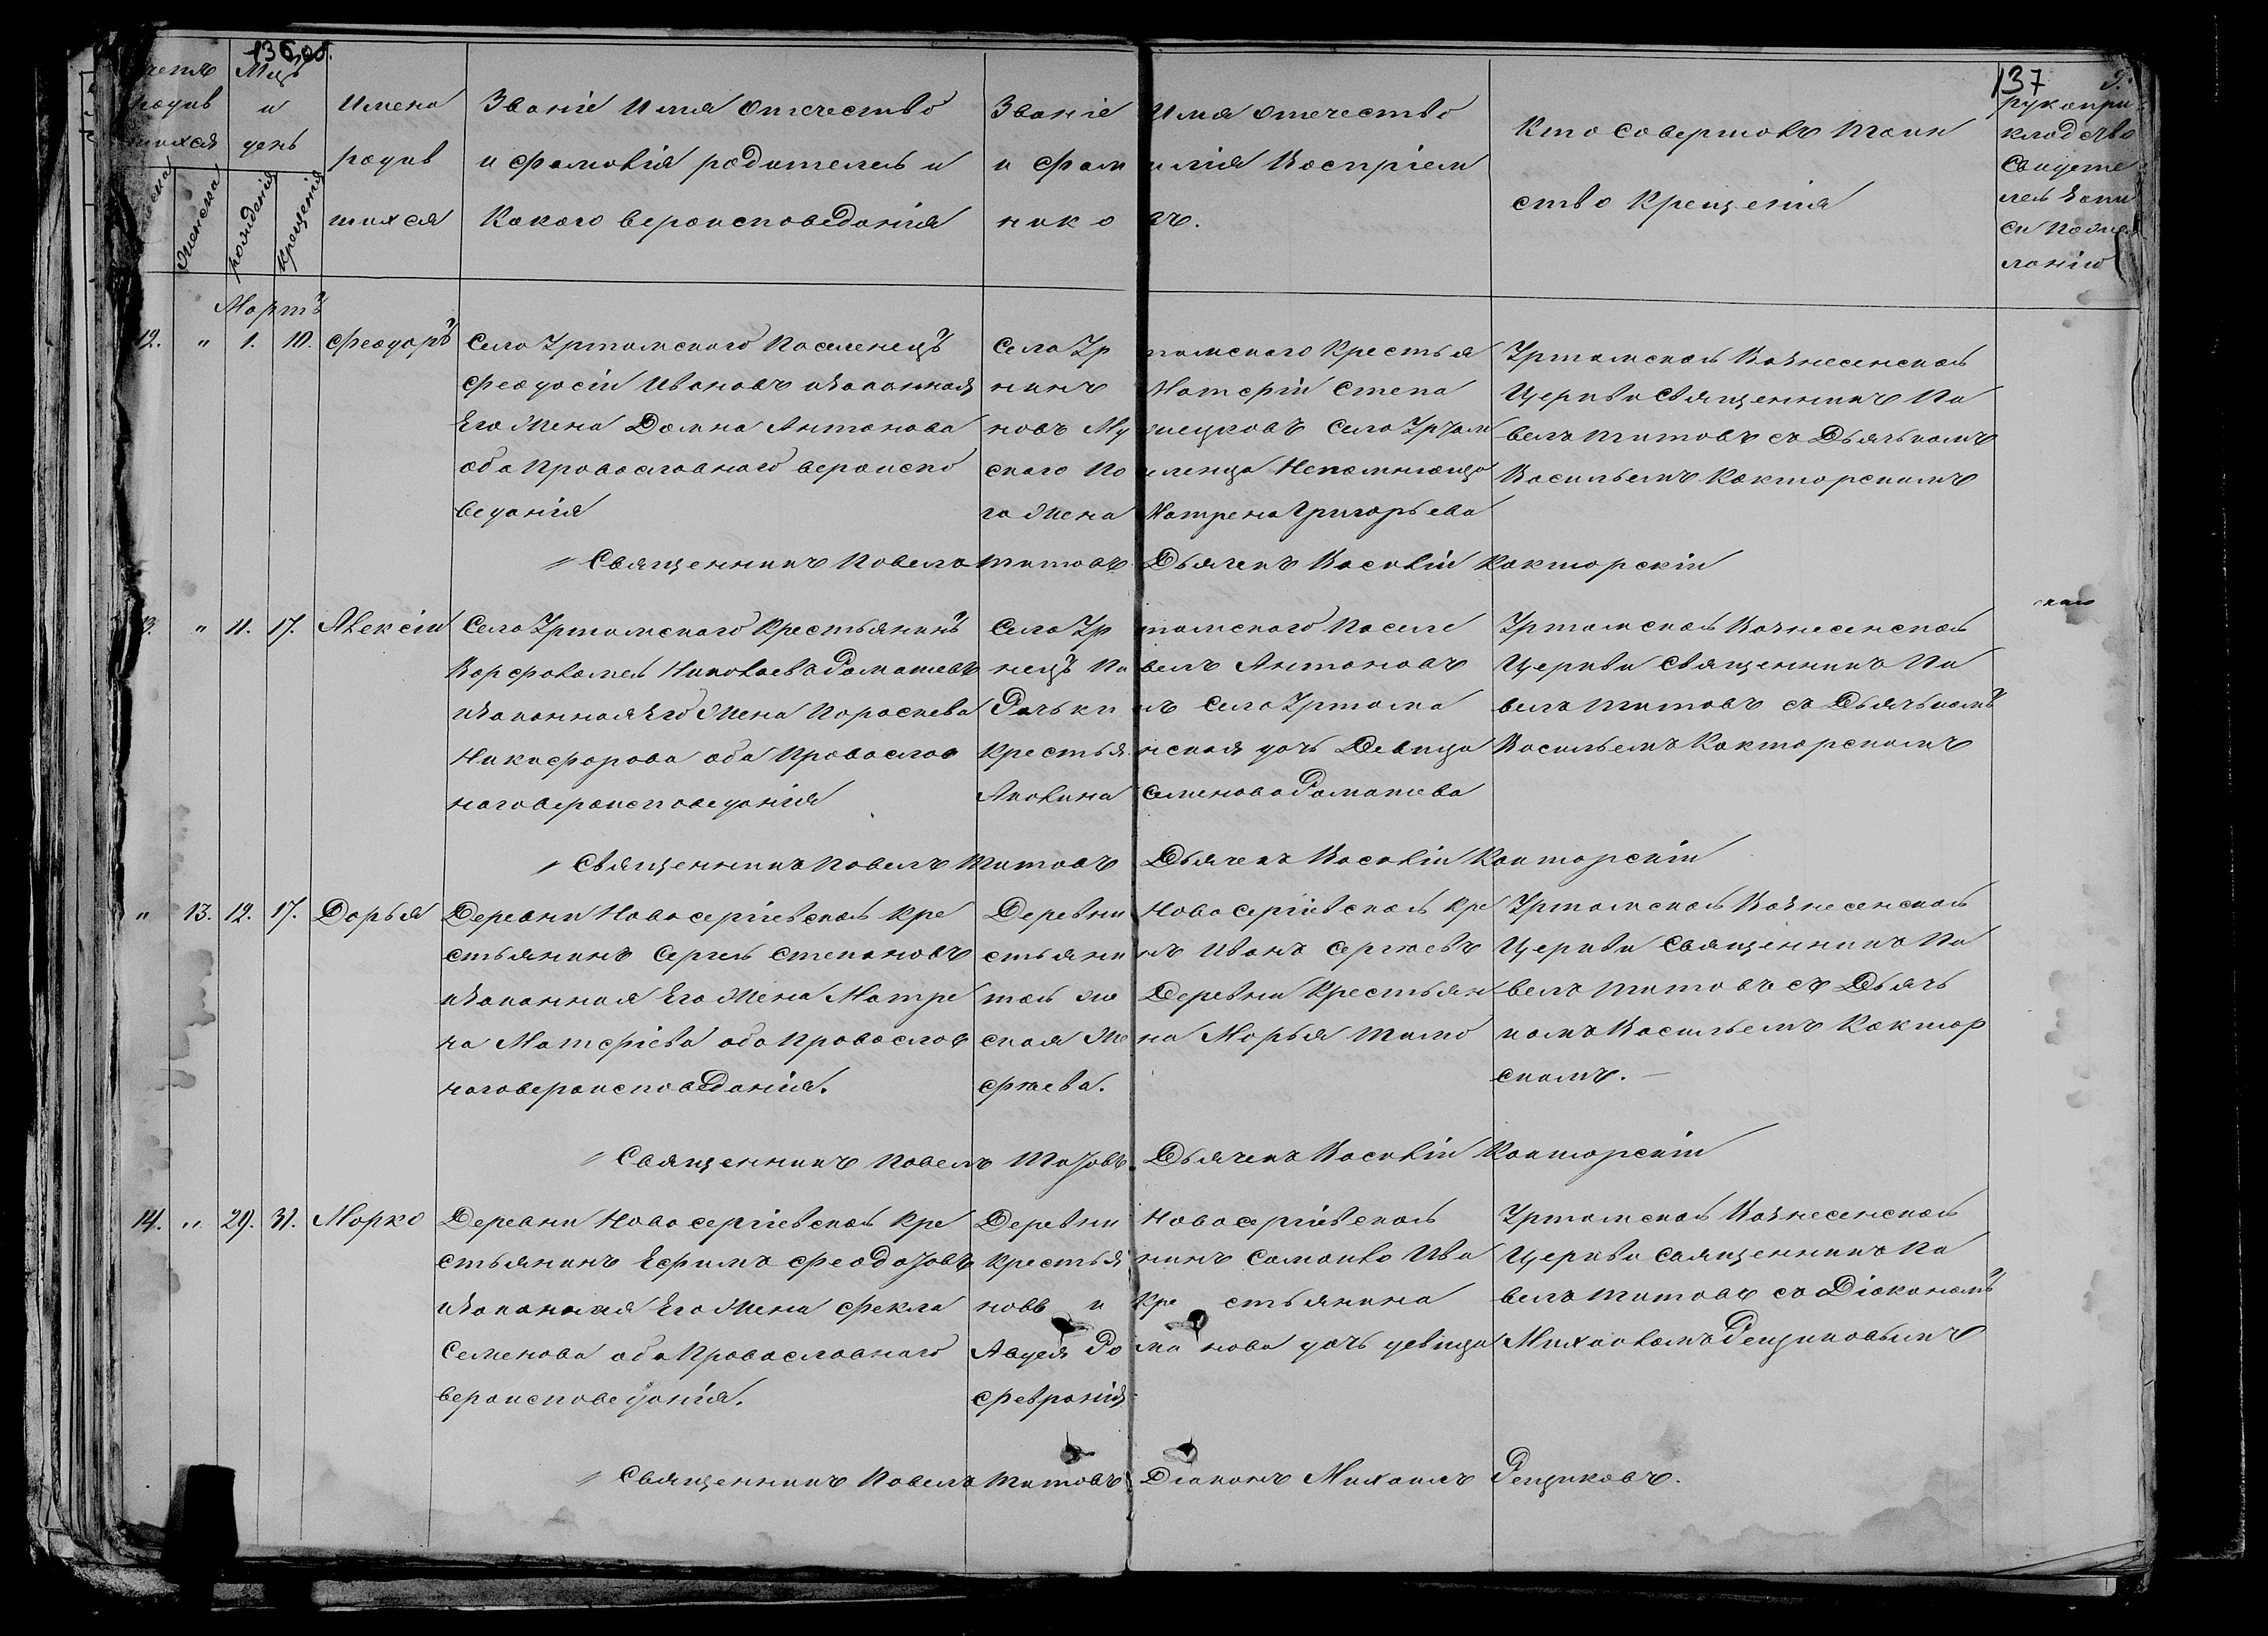 136 об.
137
Счетъ родив шихся
мужеска
Женска
Мцъ и день
рождения
Крещенія
Имена родив шихся
Званіе Имя Отечество
и Фамилія родителей и
Какого вероисповедания
Званіе Имя Отечество
и Фамилія Воспріем
никовъ.
Кто совершалъ Таин
ство Крещенія
рукопри
кладство
свидете
лей запи
си по жел
ланію
Мартъ
12. " 1. 10. Феодоръ
Села Уртамского Поселенецъ
Феодосій Ивановъ изаконная
Его Жена Домна Антонова
оба Православного вероиспо
ведания
Села Уртамского Крестья
нинъ Матфій Степа
новъ Мужецковъ села Уртам
ского Поселенца Непомнюща
го Жена Матрена Григорьева
Уртамской Вознесенской
Церкви Священникъ Па
велъ Титовъ съ Дьячькомъ
Васильемъ Какторскимъ
Священникъ Павелъ Титовъ Дьячекъ Василій Какторскій
13. " 11. 17. Алексій
Села Уртамского Крестьянинъ
Варфоломей Николаевъ Ромашевъ
изаконная Его Жена Параскева
Никифорова оба Православ
наго вероисповедания
Села Уртамского Поселе
нецъ Павелъ Антоновъ
Рачькинъ села Уртама
Крестьянская дочь Девица
Акилина Семенова Ромашева
Уртамской Вознесенской
Церкви Священникъ Па
велъ Титовъ съ Дьячькомъ
Васильемъ Какторскимъ
Священникъ Павелъ Титовъ Дьячекъ Василій Какторскій
" 13. 12. 17. Дарья
Деревни Новосергіевской Кре
стьянинъ Сергей Степановъ
изаконная Его Жена Матре
на Матфіева оба Православ
наго вероисповедания.
Деревни Новосергіевской Кре
стьянинъ Иванъ Сергеевъ
той же Деревни Крестьян
ская Жена Марья Тимо
феева.
Уртамской Вознесенской
Церкви Священникъ Па
велъ Титовъ съ Дьячь
комъ Васильемъ Какторскимъ.
Священникъ Павелъ Титовъ Дьячекъ Василій Какторскій
14. " 29. 31. Марко
Деревни Новосергіевской Кре
стьянинъ Ефимъ Феодотовъ
изаконная Его Жена Фекла
Семенова оба Православнаго
вероисповедания.
Деревни Новосергіевской
Крестьянинъ Самойло Ива
новъ и Крестьянина
Авдея Романова дочь девица
Феврания
Уртамской Вознесенской
Церкви Священникъ Па
велъ Титовъ съ Діакономъ
Михаиломъ Рещиковымъ
Священникъ Павелъ Титовъ Діаконъ Михаилъ Рещиковъ.